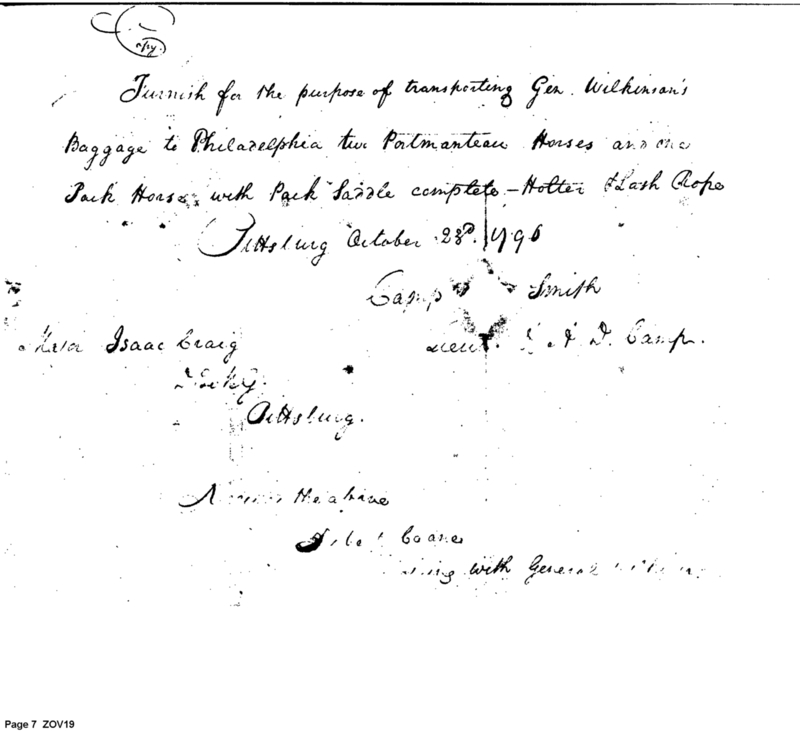 Copy.
Furnish for the purpose of transporting Gen. Wilkinson's
Baggage to Philadelphia two Portmanteau Horses and one
Pack Horse, with Pack Saddle complete - Holter & Lash Rope
Pittsburg October 23d. 1796
Camp Smith
Isaac Craig
Lieut. & A D. Camp.
Pittsburg.
the above
with General
Page 7 ZOV19